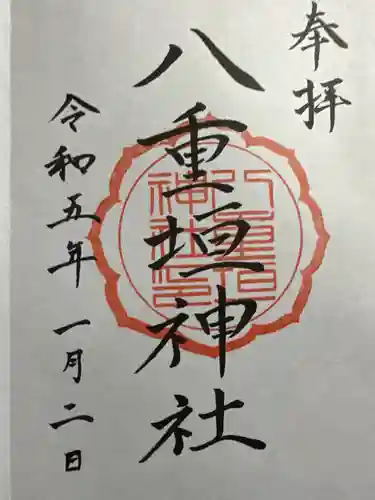 奉拝
八重垣神社
八重垣神社印
令和五年一月二日